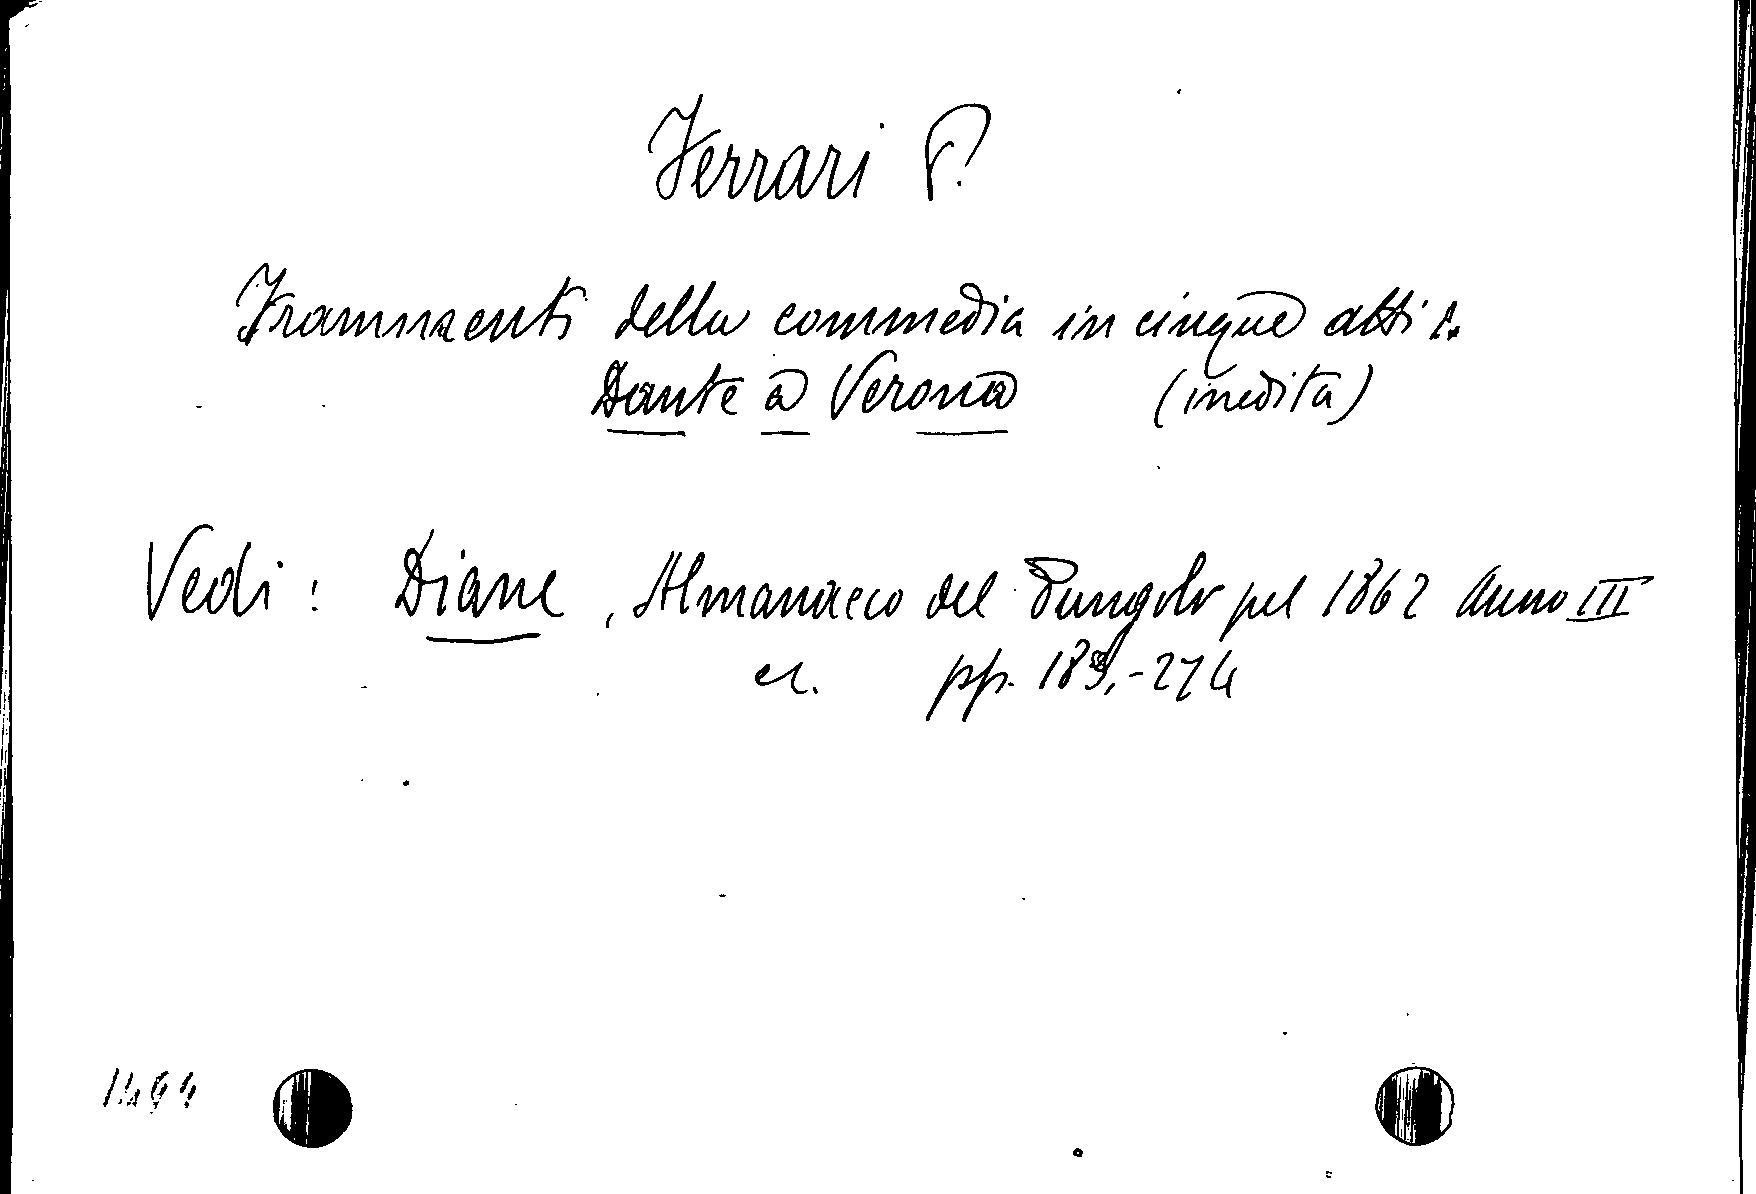 Ferrari P.
Frammenti della commedia in cinque atti:
Dante a Verona (inedita)
Vedi: Diane, Almanacco del Pungolo pel 1862 Anno III
pp. 189,-274